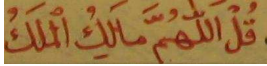 قُلْ اللّٰهُمَّ مَالِكُ الْمُلْكُ